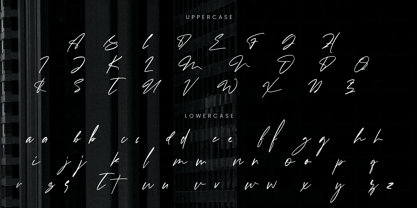 UPPERCASE
A B C D E F G H
I J K L M N O P Q
R S T U V W X Y Z
LOWERCASE
a a b b c c d d e e f f g g h h
i j j k l m m n n o o p q
r s s t t u u v v w w x y z z